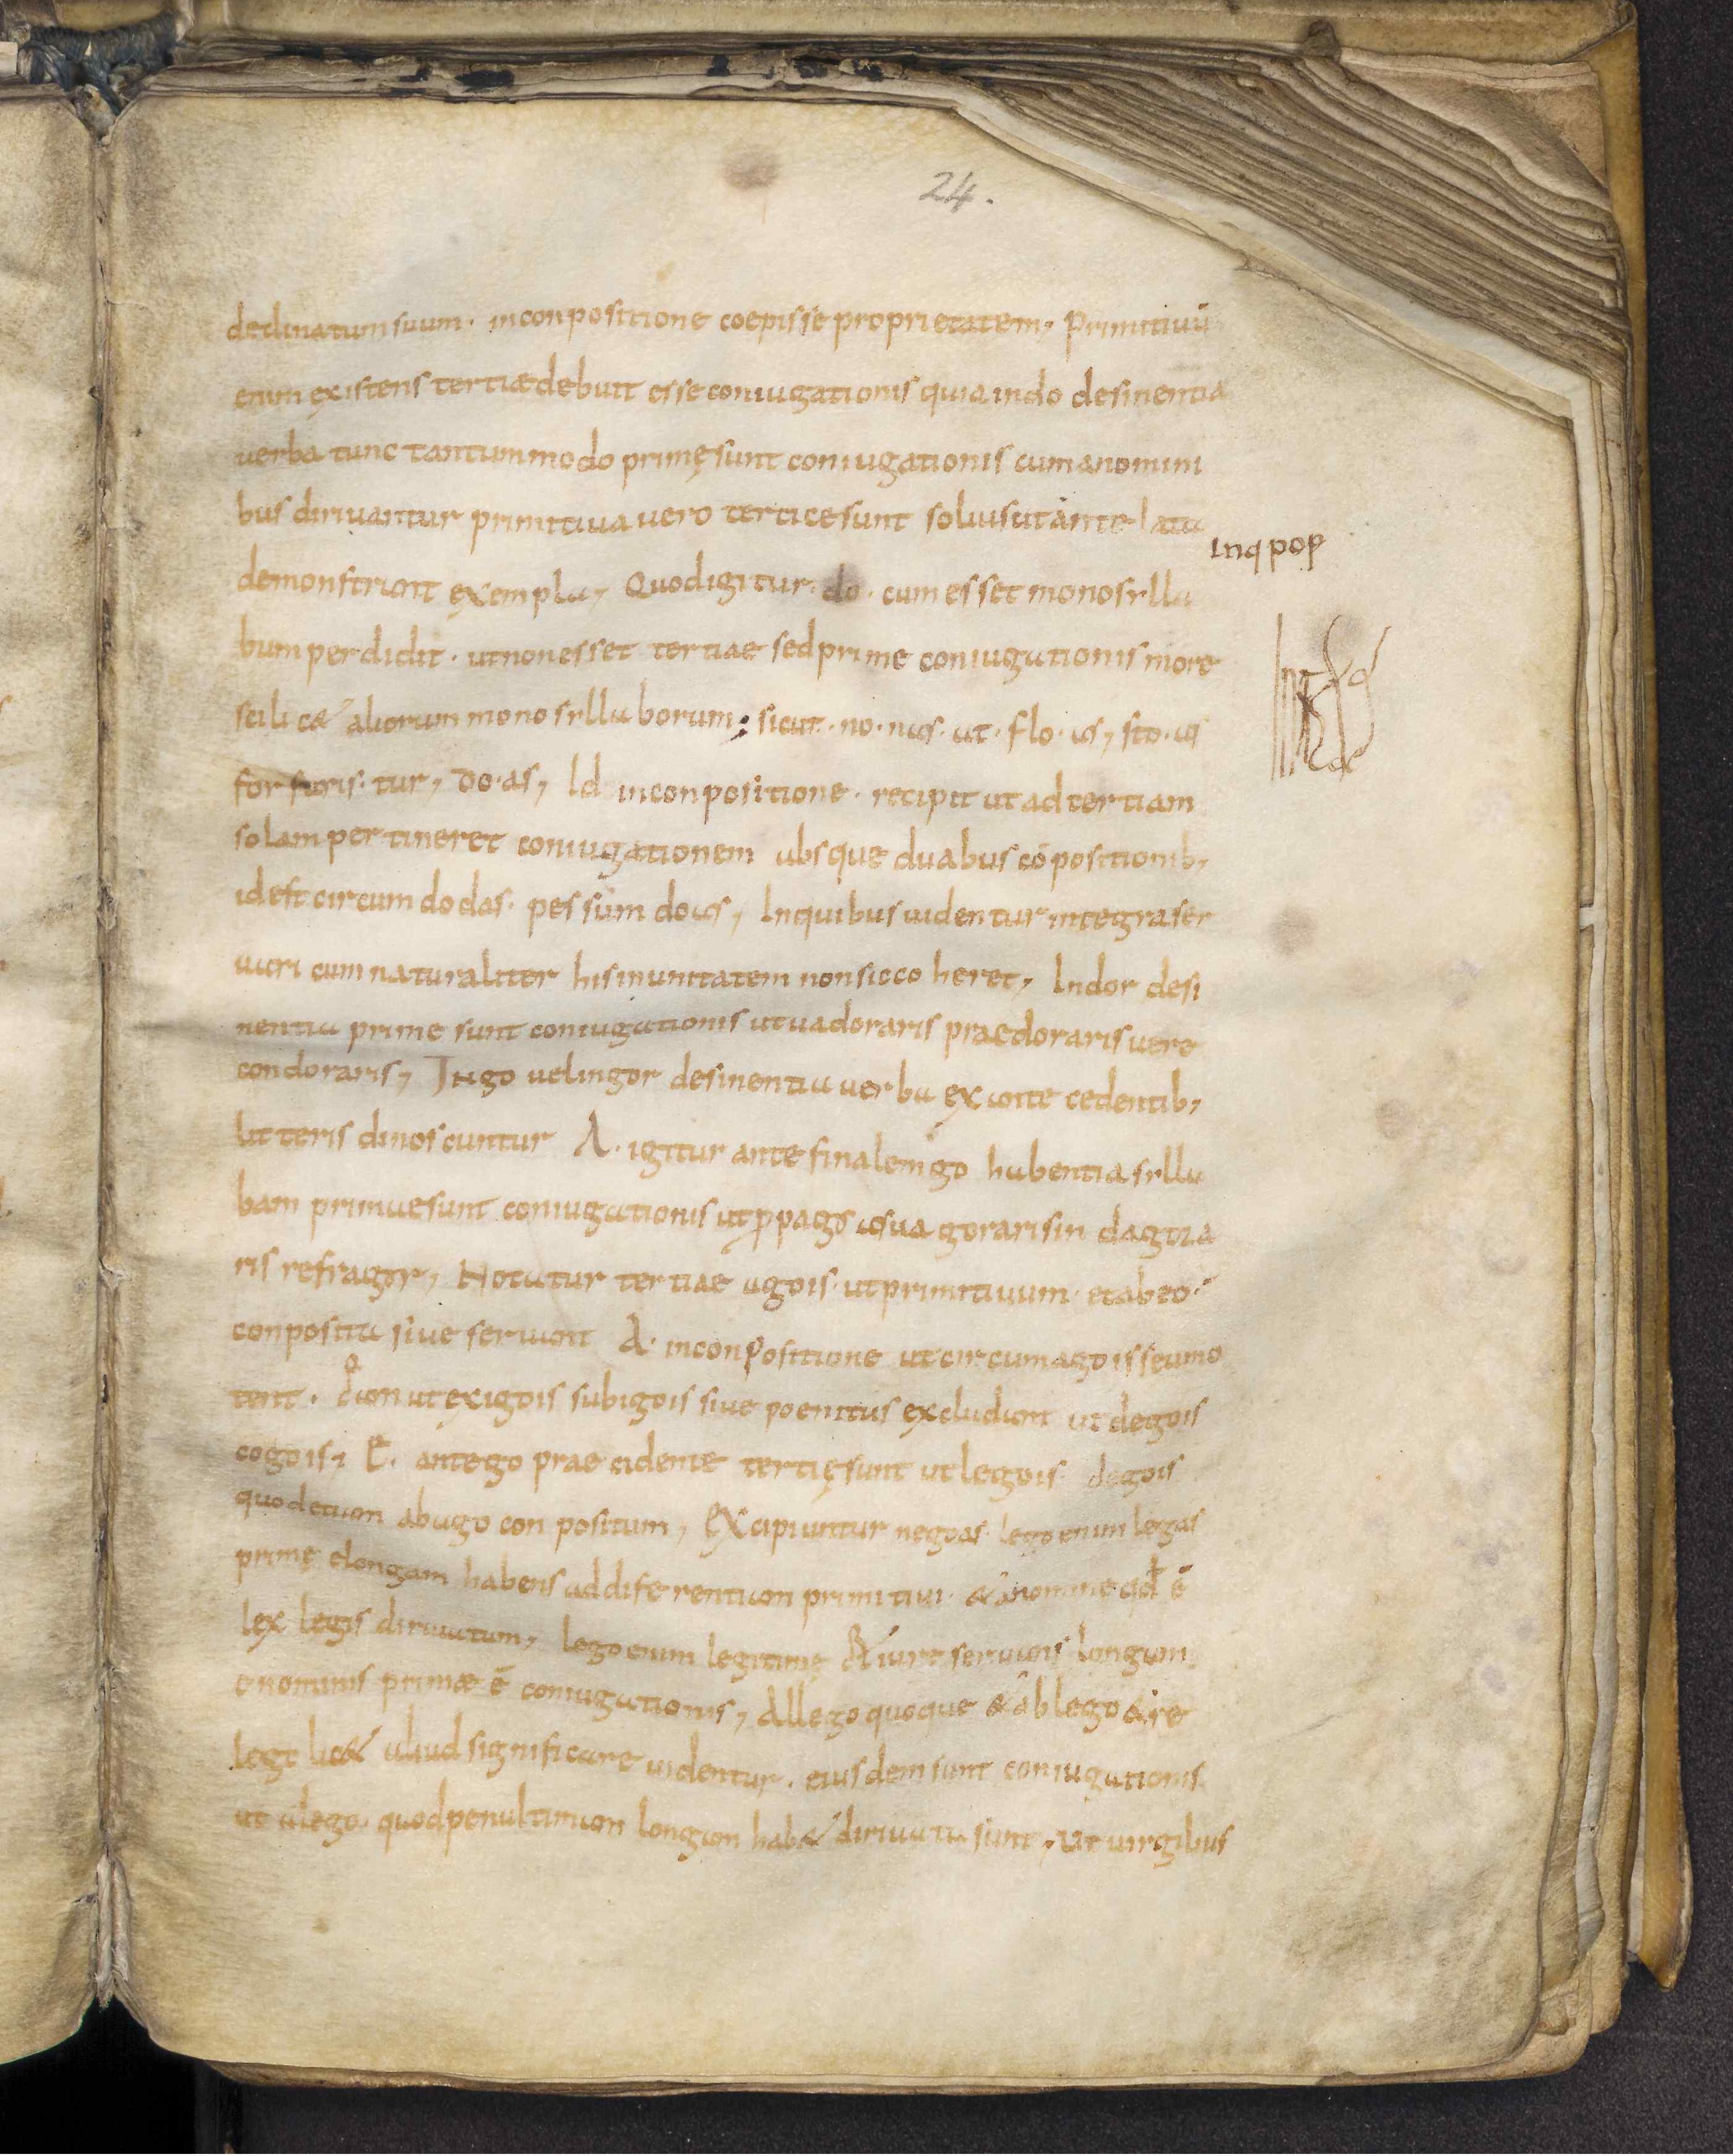 24.
declinatum suum · inconpositione coepisse proprietatem, Primitiuū
enim existens tertiae debuit esse coniugationis quia indo desinentia
uerba tunc tantummodo primę sunt coniugationis cum anomini
bus diriuantur primitiua uero tertice sunt soluis ut ante lata
inq pop
demonstrant exempla, Quodigitur · do · cum esset monosylla
bum perdidit · ut non esset tertiae sed prime coniugationis more
scilic& aliorum monosyllaborum ; sicut · no · nas · ut · flo · as, sto · as
for faris · tur, do · as, Id inconpositione · recipit ut ad tertiam
solam pertineret coniugationem absque duabus cōpositionib,
id est circumdo das · pessum do as, Inquibus uidentur integra ser
uari cum naturaliter his inunitatem non sic co heret, Indor desi
nentia prime sunt coniugationis ut uador aris praedor aris uere
condor aris, Ingo uel ingor desinentia uerba ex ante cedentib,
litteris dinoscuntur A · igitur ante finalem go habentia sylla
bam primae sunt coniugationis ut ꝓpago as uagor aris indagor a
ris refragor, Notatur tertiae ago is · ut primitiuum · et ab eo ·
conposita siue seruant A · inconpositione ut circumago is seu mo
tent · dian ut exigo is subigo is siue poenitus excludunt ut dego is
cogo is, E · ante go prae cidente tertię sunt ut lego is · dego is
quod etiam ab ago con positum, Excipiuntur nego as · lego enim legas
primę e longam habens ad diferentiam primitiui · & a nomine qd ē
lex legis diriuatum, lego enim legitime & iure seruans longam
e nominis primæ ē coniugationis, Allego quoque & ablego & re
lego lic& aliud significare uidentur · eiusdem sunt coniugationis
ut alego · quod penultimam longam hab& diriuata sunt, ut uirgibus